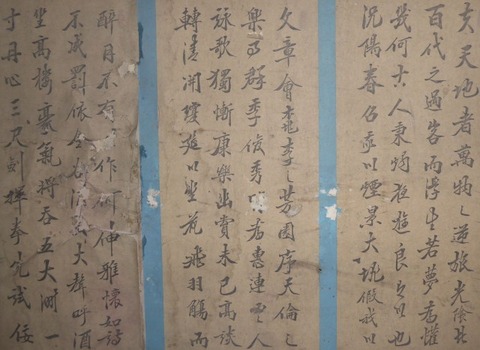 夫天地者萬物之逆旅光陰者
百代之過客而浮生若夢為懽
幾何古人秉燭夜遊良有以也
況陽春召我以煙景大塊假我以
文章會桃李之芳園序天倫之
樂事群季俊秀皆為惠連吾人
詠歌獨慚康樂幽賞未已高談
轉清開瓊筵以坐花飛羽觴而
醉月不有作何伸雅懷如詩
不成罰依金谷酒數大聲呼酒
坐高樓豪氣將吞五大洲一
寸丹心三尺劍揮拳先試佞